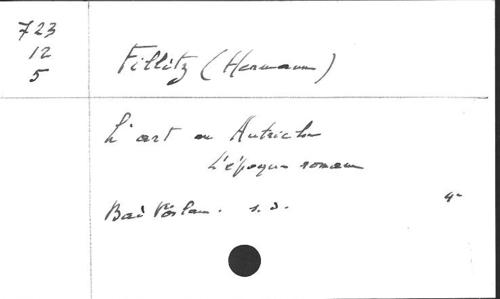 723
12
5
Fillitz (Hermann)
L'art en Autriche
L'époque romane
Bad Vöslau. s.d.
4°